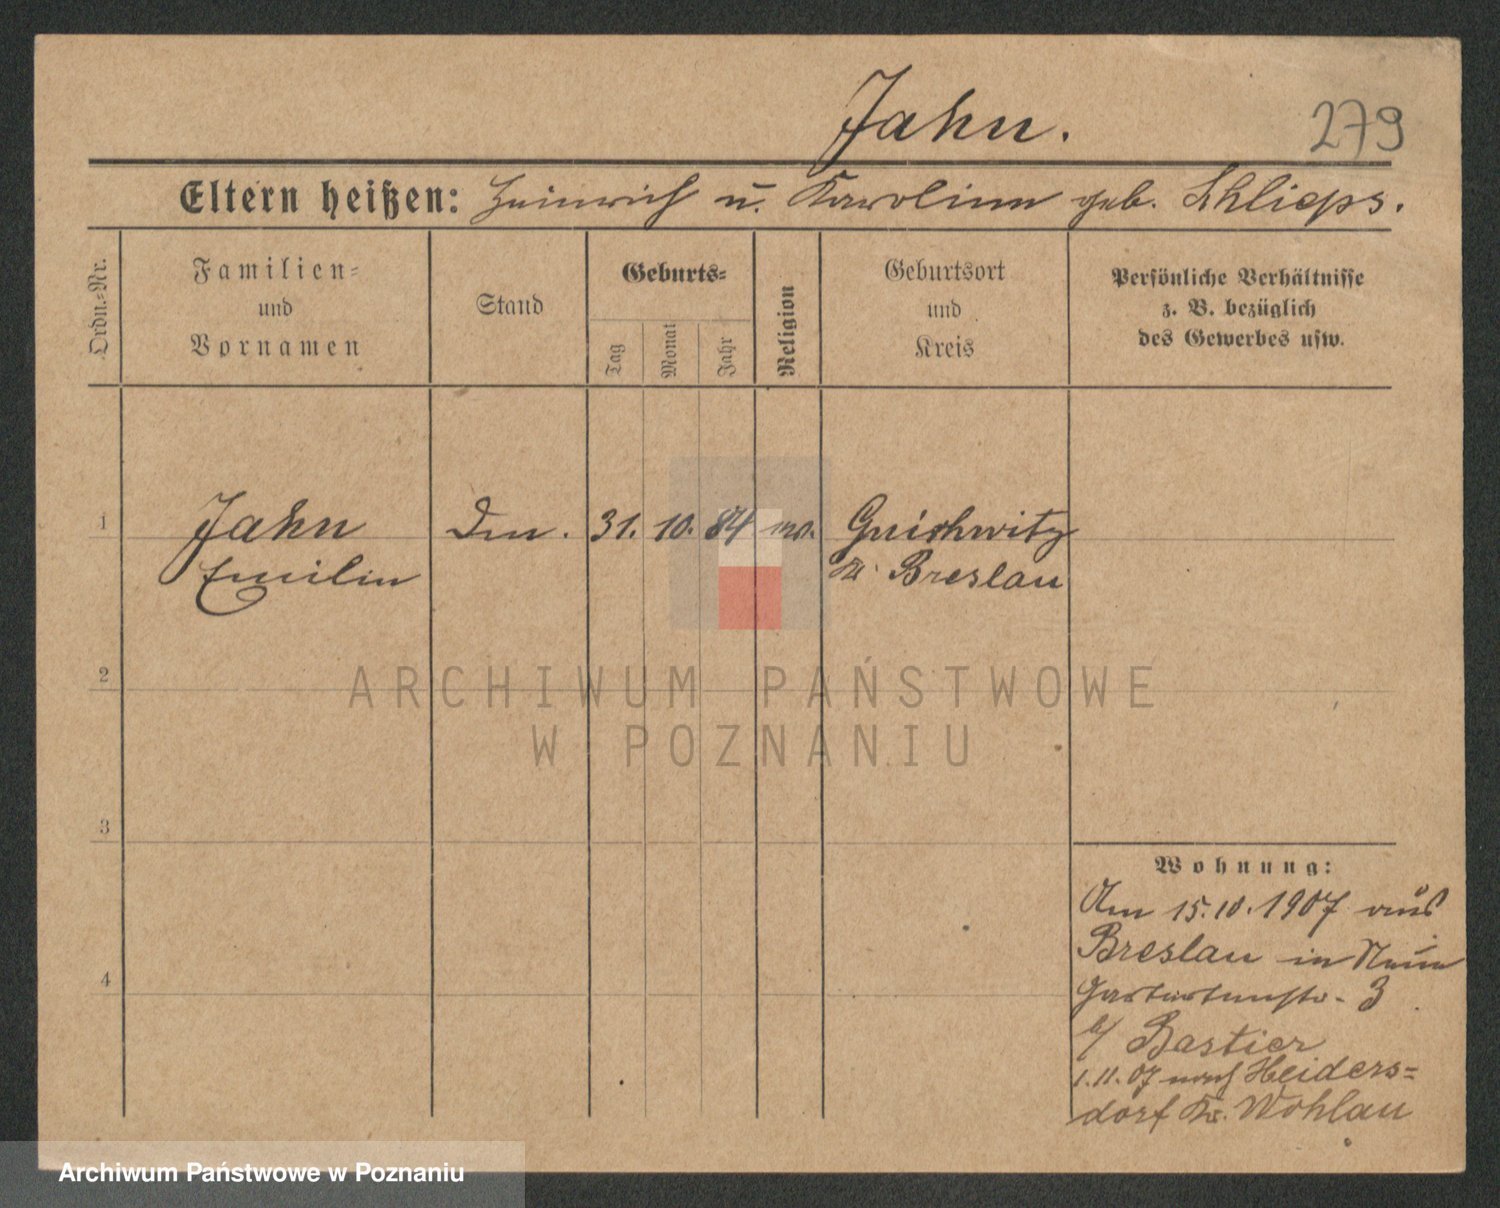 Jahn.
279
Eltern heißen: Heinrich u. Karoline geb. Schlieps.
Ordn.-Nr.
Familien-
und
Vornamen
Stand
Geburts-
Tag
Monat
Jahr
Religion
Geburtsort
und
Kreis
Persönliche Verhältnisse
z. B. bezüglich
des Gewerbes usw.
1
Jahn
Emilie
31. 10. 84
Gnichwitz
Kr. Breslau
2
ARCHIWUM PAŃSTWOWE
W POZNANIU
3
4
Wohnung:
Am 15.10.1907 aus
Breslau in Neue
Gartenstr. 3
b/ Bastier
1.11.07 nach Heiders=
dorf Kr. Wohlau
Archiwum Państwowe w Poznaniu